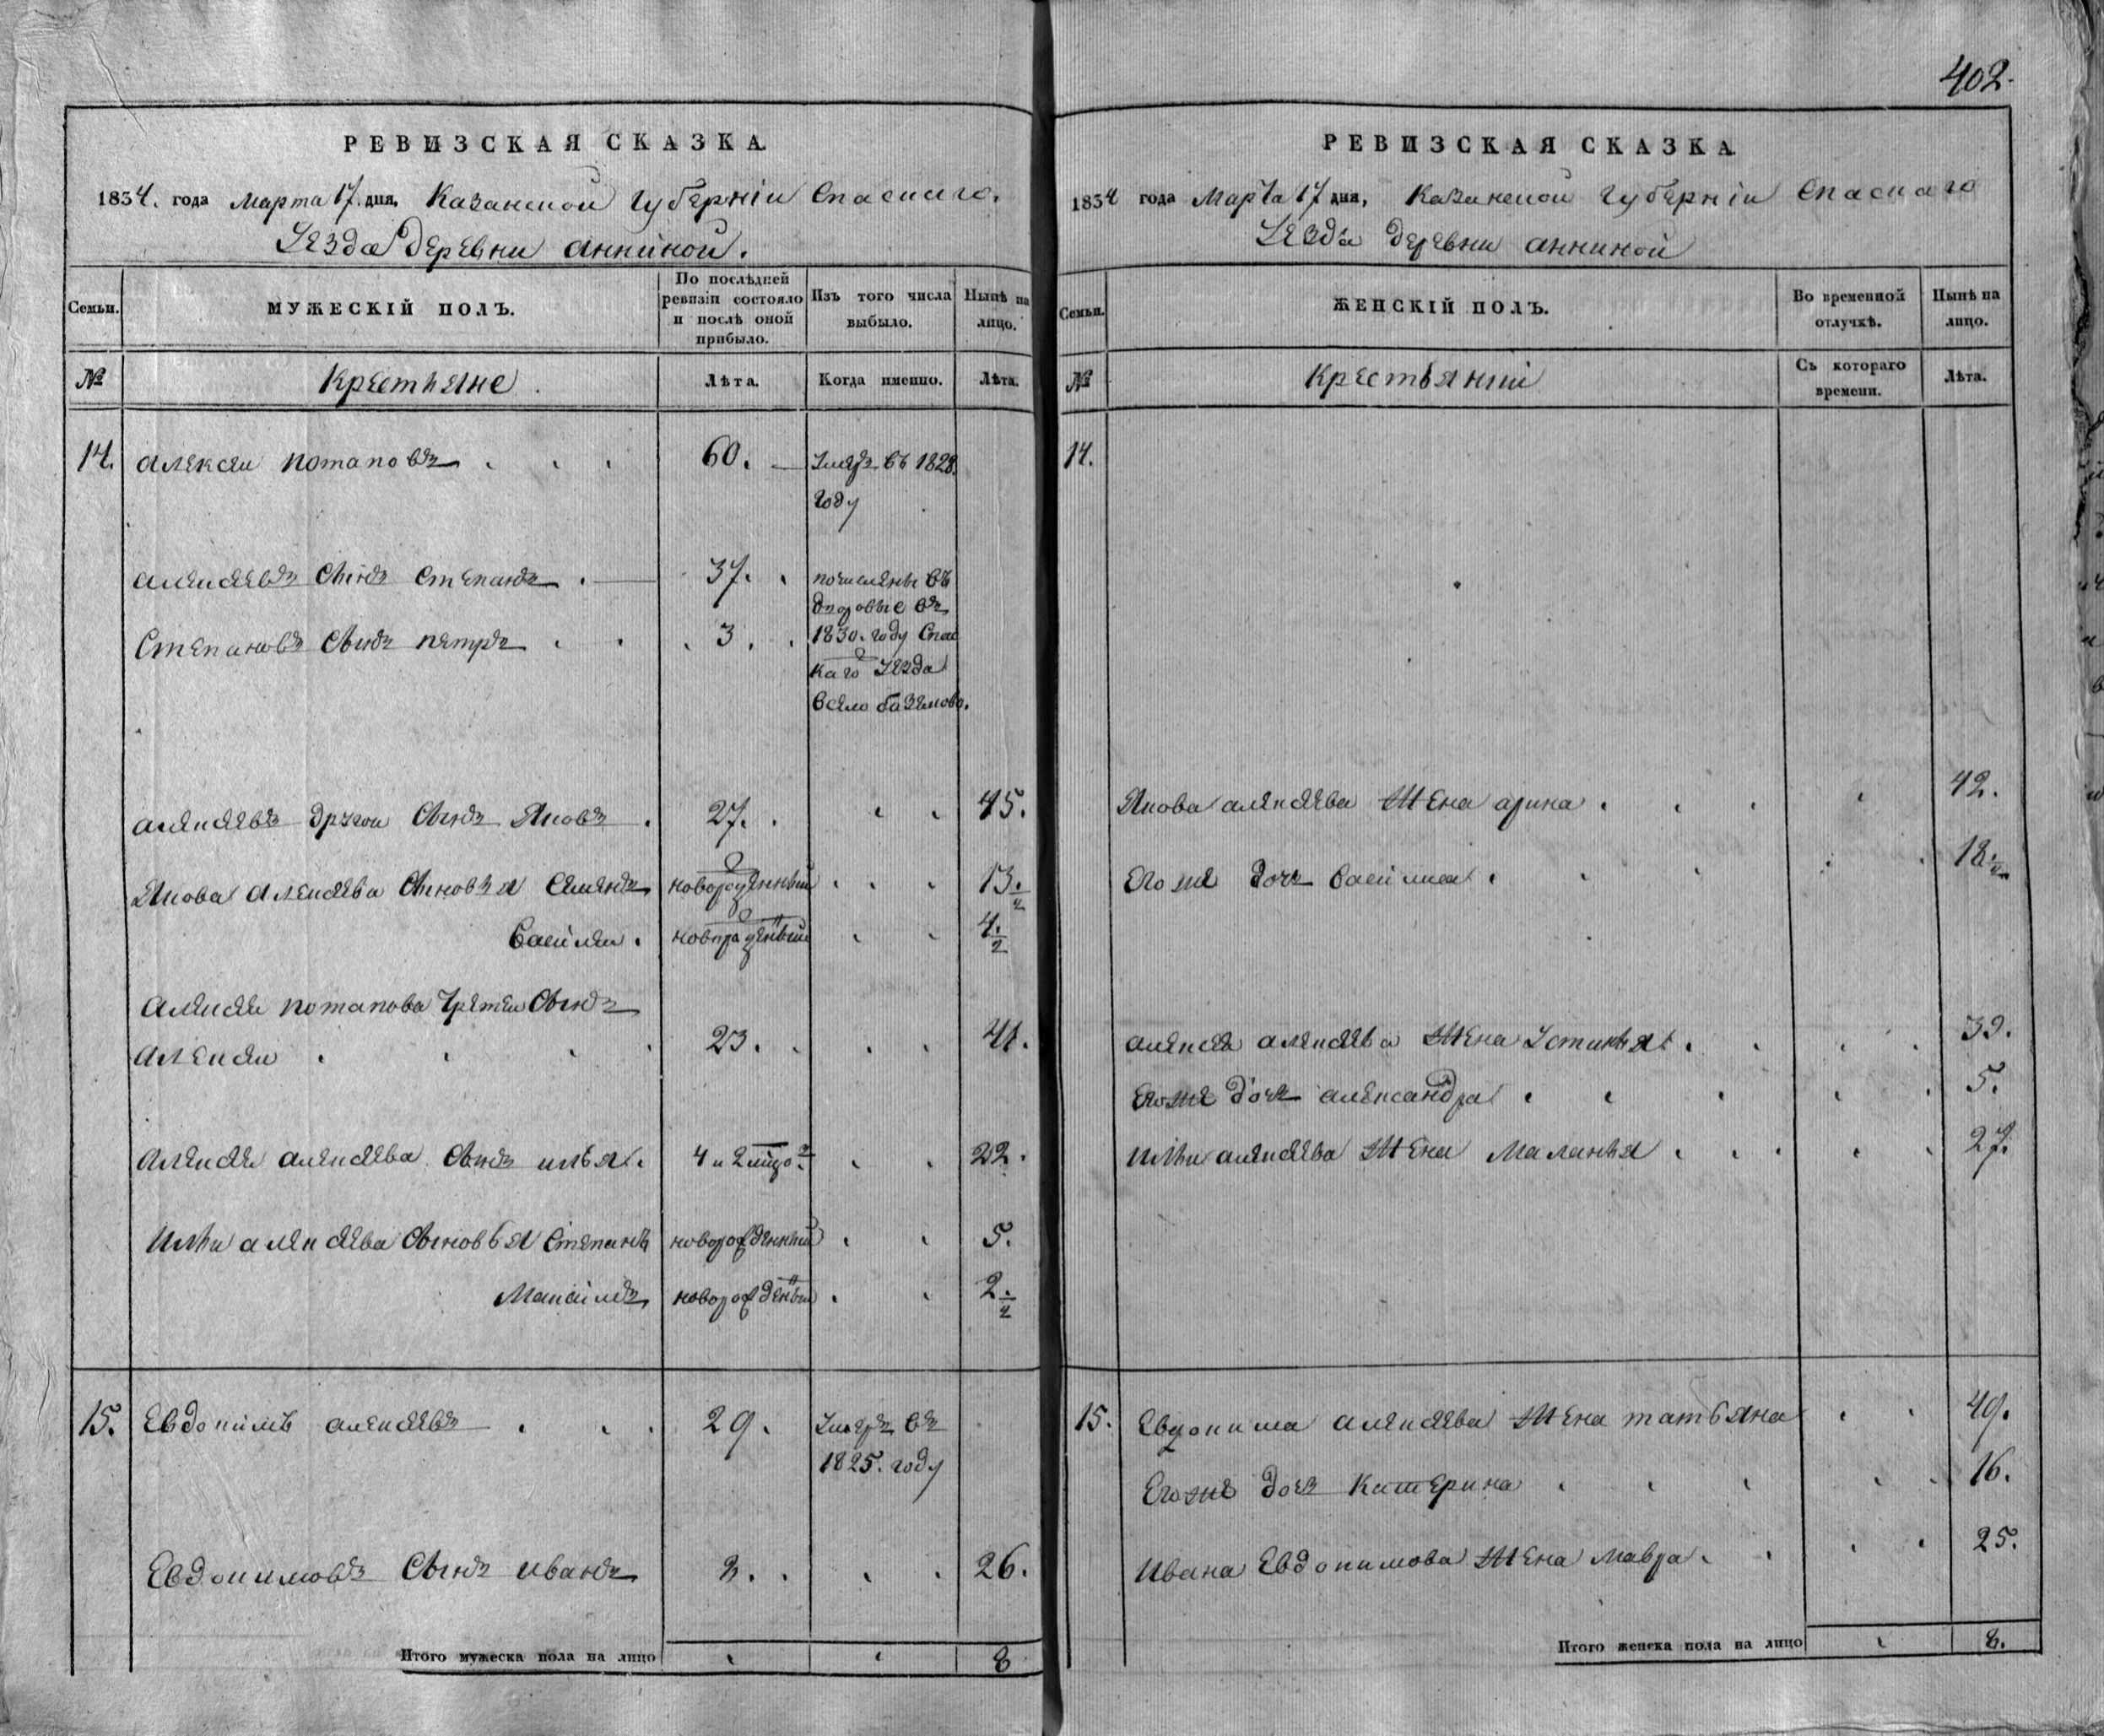 402.
РЕВИЗСКАЯ СКАЗКА.
1834. года Марта 17. дня. Казанской Губерніи Спаскаго.
Уезда Деревни Анниной.
Семьи.
МУЖЕСКІЙ ПОЛЪ.
По послѣдней ревизіи состояло и послѣ оной прибыло.
Изъ того числа выбыло.
Нынѣ на лицо.
№
Крестьяне.
Лѣта.
Когда именно.
Лѣта.
14. Алексеи потаповъ 60. Умеръ въ 1828.
году
Алексеевъ сынъ степанъ 37. почислены въ
дворовые въ
Степановъ сынъ петръ 3. 1830. году Спас
каго Уезда
всело
Алексеевъ другои сынъ Яковъ. 27. 45.
Якова Алексеева сыновья Семенъ новорожденныи 13.
Василеи. новорожденыи 4.
Алексея потапова третеи сынъ
Алексеи 23. 41.
Алексея алексеева сынъ илья. 4 22.
Ильи алексеева сыновья Степанъ новорожденныи 5.
новорожденыи 2.
15. Евдокимъ алексеевъ 29. Умеръ въ
1825. году
Евдокимовъ сынъ иванъ 26.
Итого мужеска пола на лицо 8
РЕВИЗСКАЯ СКАЗКА
1834 года Марта 17 дня, Казанской Губерніи Спаскаго
Уезда деревни Анниной
Семьи.
ЖЕНСКІЙ ПОЛЪ.
Во временной отлучкѣ.
Нынѣ на лицо.
№
Крестьянки
Съ котораго времени.
Лѣта.
14.
Якова алексеева жена арина 42.
Егоже дочь василиса 18.
алексея алексеева жена Устинья. 39.
Егоже дочь александра 5.
Ильи алексеева жена Маланья 27.
15. Евдокима алексеева жена татьяна 49.
Егоже дочь Катерина 16.
Ивана Евдокимова жена мавра. 25.
Итого женска пола на лицо 8.